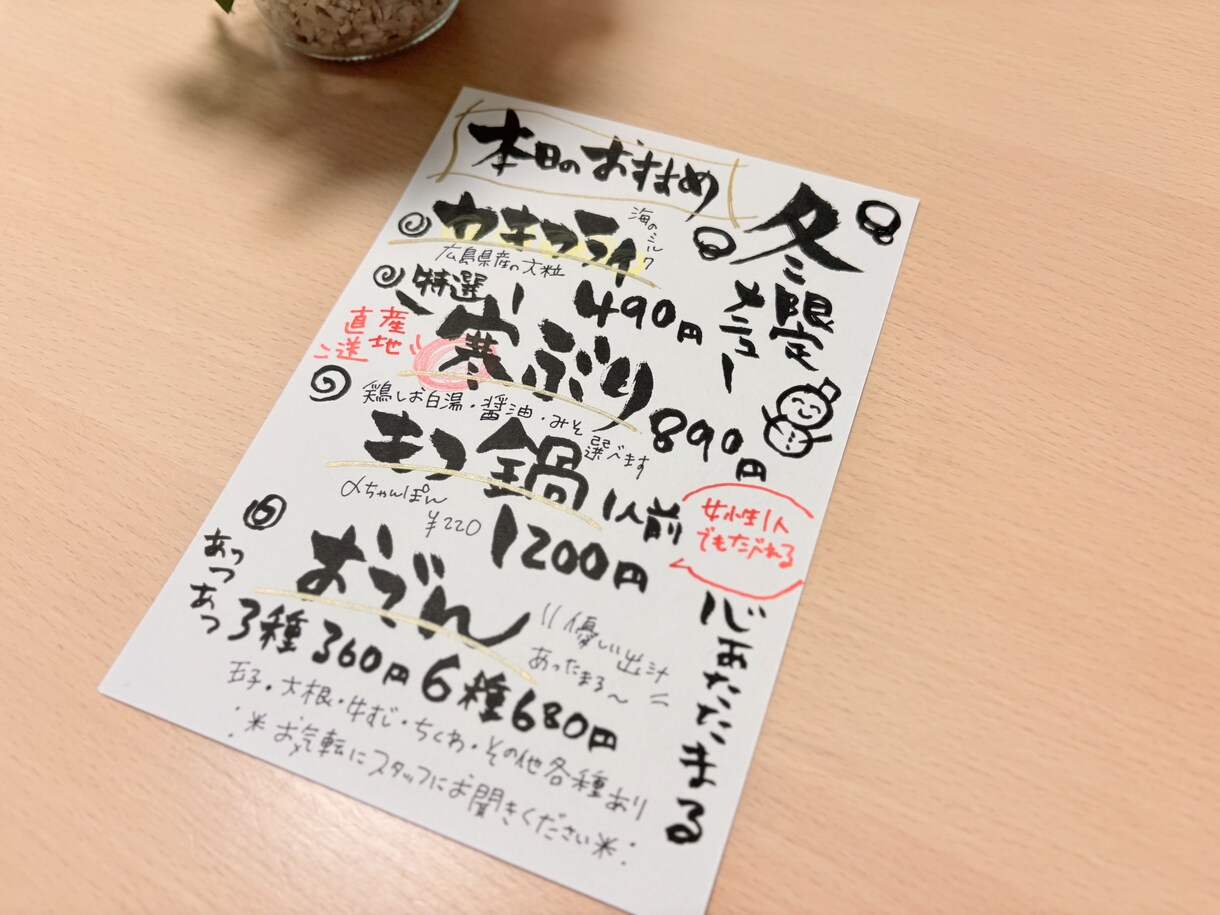 本日のおすすめ
冬限定
メニュー
カキフライ
海のミルク
広島県産の大粒
490円
特選
寒ぶり
産地
直送
890円
鶏しお白湯・醤油・みそ
選べます
もつ鍋
1人前
〆ちゃんぽん
¥220
1200円
女性1人
でもたべれる
おでん
あつ
あつ
優しい出汁
あったまる〜
3種360円 6種680円
玉子・大根・牛すじ・ちくわ・その他各種あり
※お気転にスタッフにお聞きください※
心あたたまる